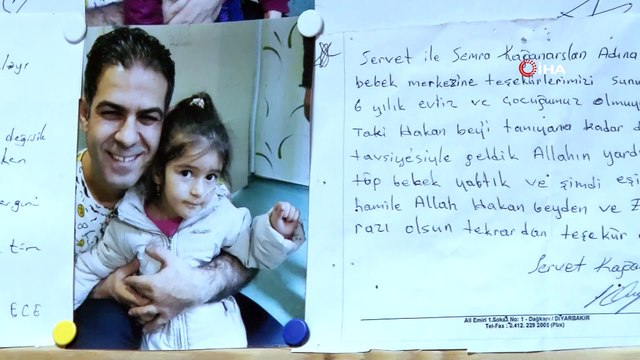 değişik
ECE
İHA
Servet ile Semra Kağanarslan Adına
bebek merkezine teşekürlerimizi
6 yıllık evliz ve çocuğumuz olmuy
Taki Hakan beyi tanıyana kadar
tavsiyesiyle geldik Allahın yard
töp bebek yabtık ve şimdi eşi
hamile Allah Hakan beyden ve
razı olsun tekrardan teşekür
Servet Kağa
Ali Emiri 1.Sokak No: 1 - Dağkapı / DİYARBAKIR
Tel-Fax : 0.412. 229 2005 (Pbx)